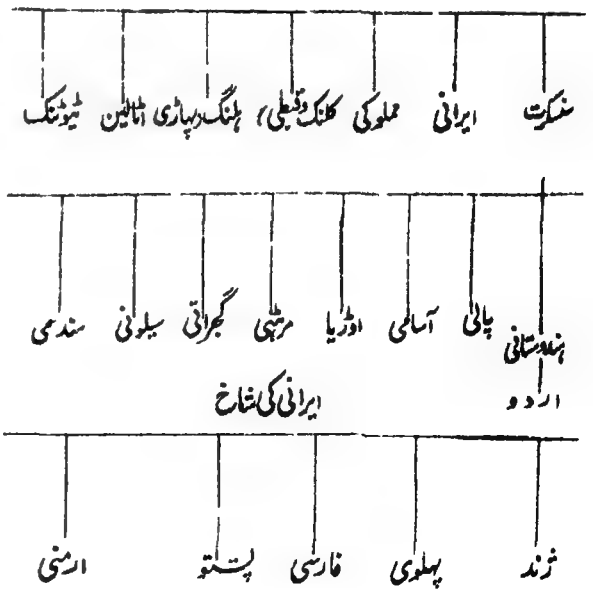 سنسکرت ایرانی مملوکی کلنک وقبطی، ہلنگ دہپاڑی اٹالین ٹیوٹنک
ہندوستانی پالی آسامی اوڑیا مرہٹی گجراتی سیلونی سندھی
اردو
ایرانی کی شاخ
ژند پہلوی فارسی پشتو ارمنی